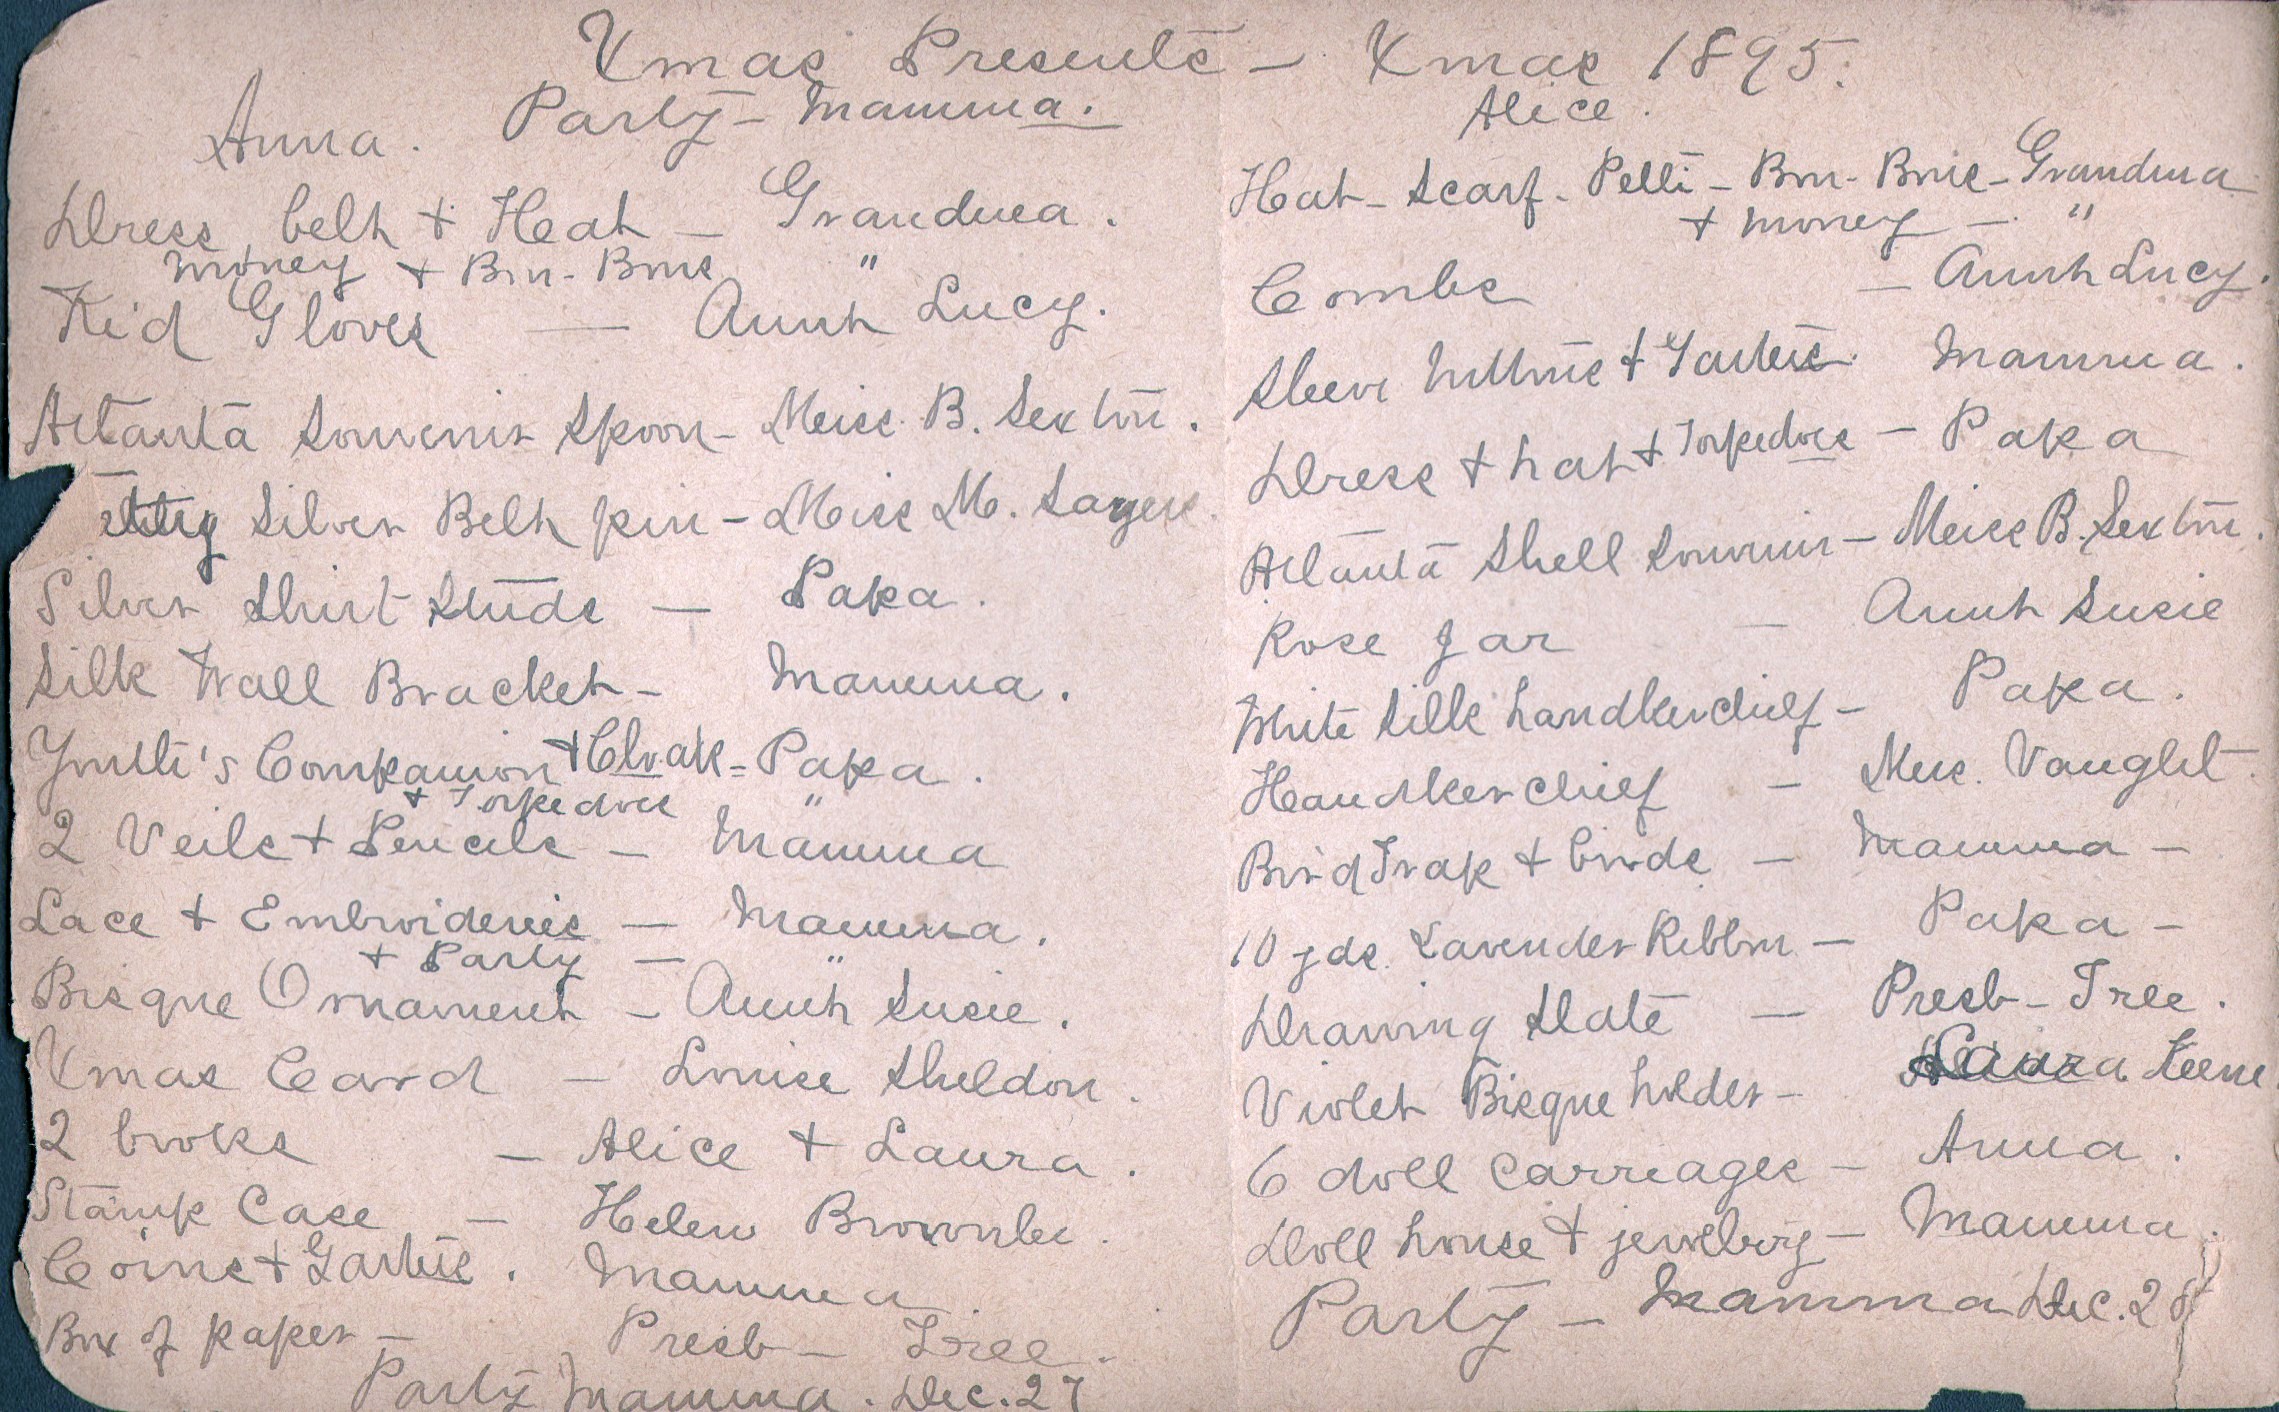 Xmas Presents — Xmas 1895.
Party — Mamma.
Anna.
Dress, belt + Hat — Grandma.
Money + Bon-Bons "
Kid Gloves — Aunt Lucy.
Atlanta Souvenir Spoon — Miss B. Sexton.
Silver Belt pin — Miss M. Sayers
Silver Shirt Studs — Papa.
Silk Wall Bracket — Mamma.
Youth's Companion + Cloak = Papa.
+ Torpedoes "
2 Veils + Pencils — Mamma
Lace + Embroideries — Mamma.
+ Party — "
Bisque Ornament — Aunt Susie.
Xmas Card — Louise Sheldon.
2 books — Alice + Laura.
Stamp Case — Helen Brownlee.
Coins + Garters. Mamma.
Box of paper — Presb — Tree.
Party Mamma. Dec. 27
Alice.
Hat — Scarf — Petti — Bon-Bons — Grandma
+ money — "
Combs — Aunt Lucy.
Sleeve buttons + Garters. Mamma.
Dress + hat + Torpedoes — Papa
Atlanta Shell Souvenir — Miss B. Sexton.
Rose Jar — Aunt Susie
White Silk handkerchief — Papa.
Handkerchief — Mrs. Vaught.
Bird Trap + birds — Mamma —
10 yds. Lavender Ribbon — Papa —
Drawing Slate — Presb — Tree.
Violet Bisque holder — Laura Keene
6 doll carriages — Anna.
Doll house + jewelery — Mamma.
Party — Mamma Dec. 28